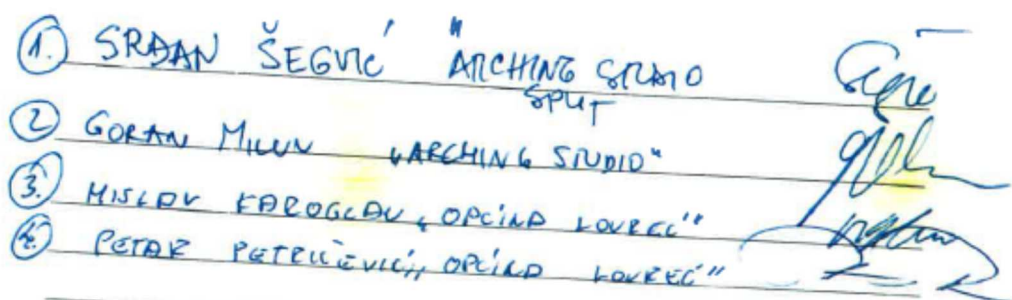 1. SRĐAN ŠEGVIĆ "ARCHING STUDIO
SPLIT
2 GORAN MILUN "ARCHING STUDIO"
3. MISLAV KAROGLAN „OPĆINA LOVREĆ"
4. PETAR PETRIČEVIĆ „OPĆINA LOVREĆ"